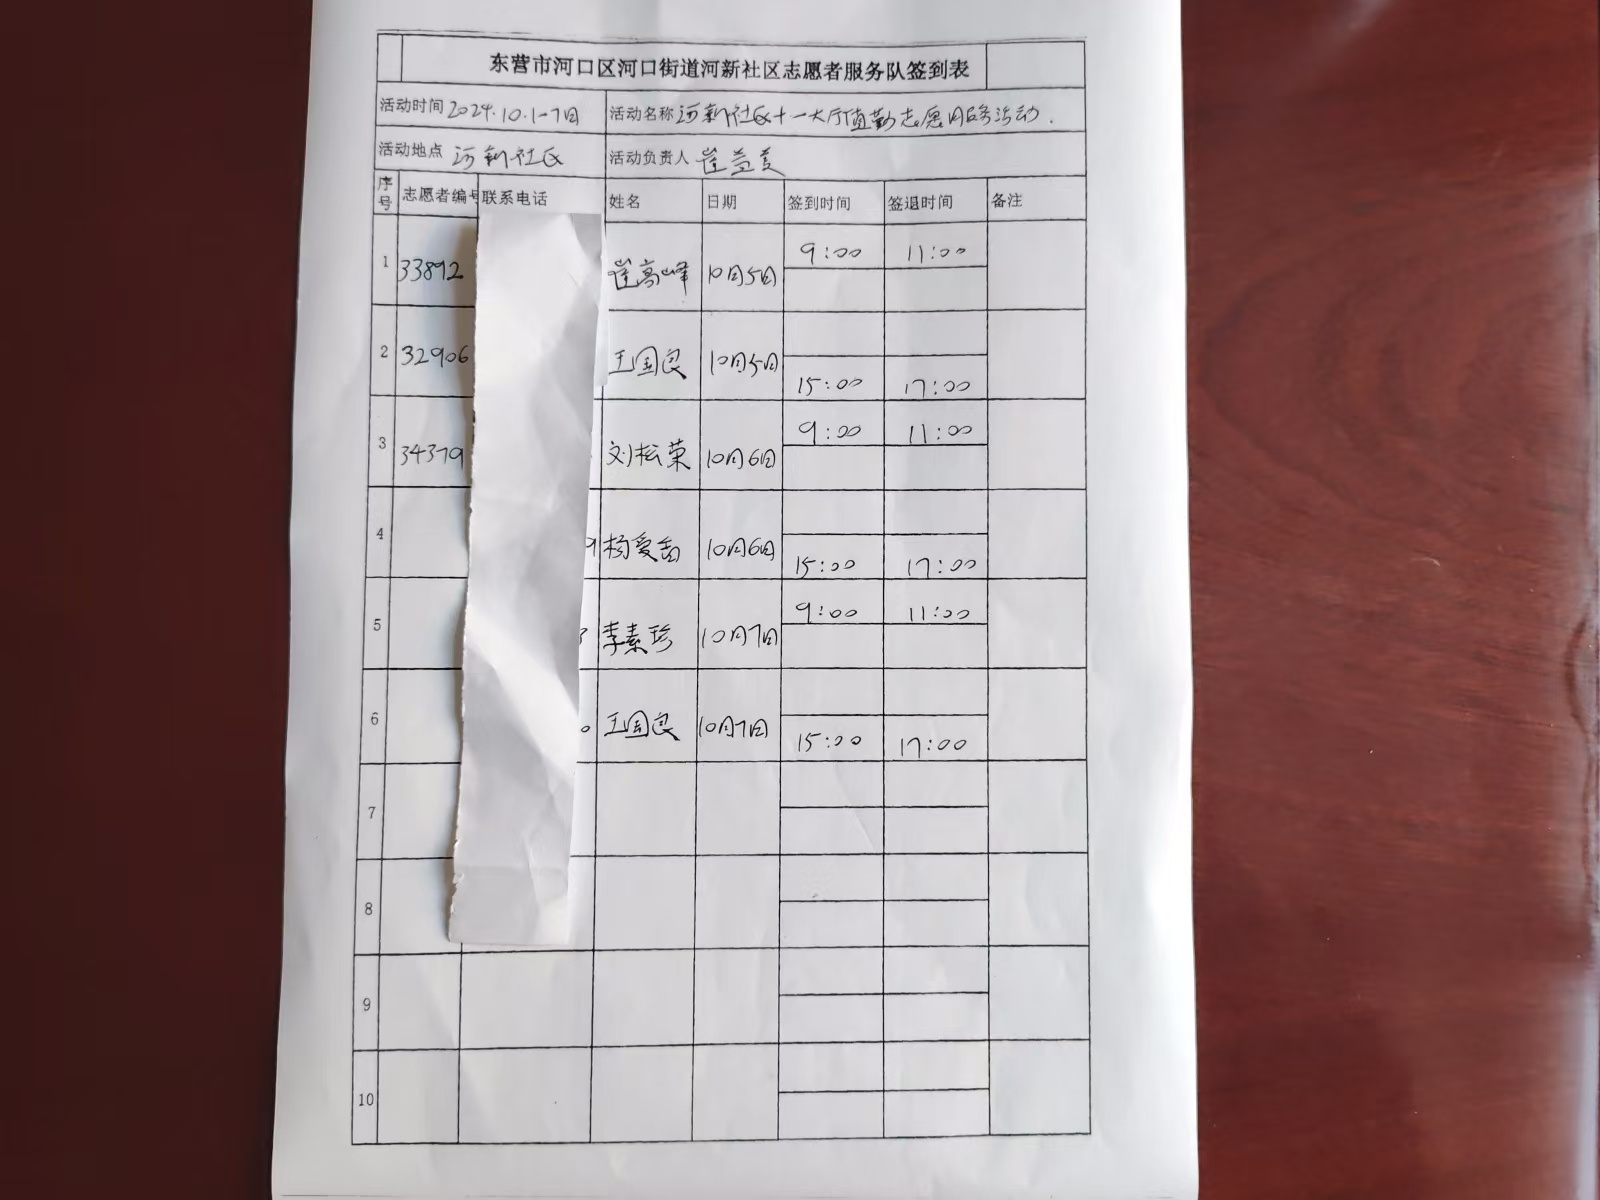 东营市河口区河口街道河新社区志愿者服务队签到表
活动时间 2024.10.1-7日 活动名称 河新社区十一大厅值勤志愿服务活动.
活动地点 河新社区 活动负责人 崔益美
序号 志愿者编号 联系电话 姓名 日期 签到时间 签退时间 备注
1 33892 崔高峰 10月5日 9:00 11:00
2 32906 王国良 10月5日 15:00 17:00
3 34379 刘松荣 10月6日 9:00 11:00
4 9 杨爱香 10月6日 15:00 17:00
5 李素珍 10月7日 9:00 11:00
6 0 王国良 10月7日 15:00 17:00
7
8
9
10